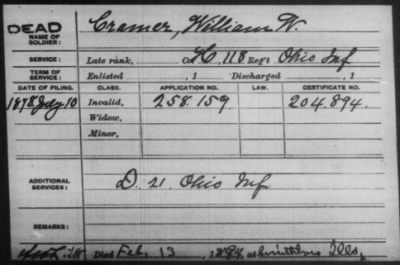 DEAD
NAME OF SOLDIER:
Cramer, William W.
SERVICE:
Late rank, Co H, 118 Reg't Ohio Inf
TERM OF SERVICE:
Enlisted , 1 Discharged , 1
DATE OF FILING. CLASS. APPLICATION NO. LAW. CERTIFICATE NO.
1878 July 10 Invalid, 258.159 204.894.
Widow,
Minor,
ADDITIONAL SERVICES:
D. 21. Ohio Inf.
REMARKS:
Died Feb. 13, 1894, at Ills,